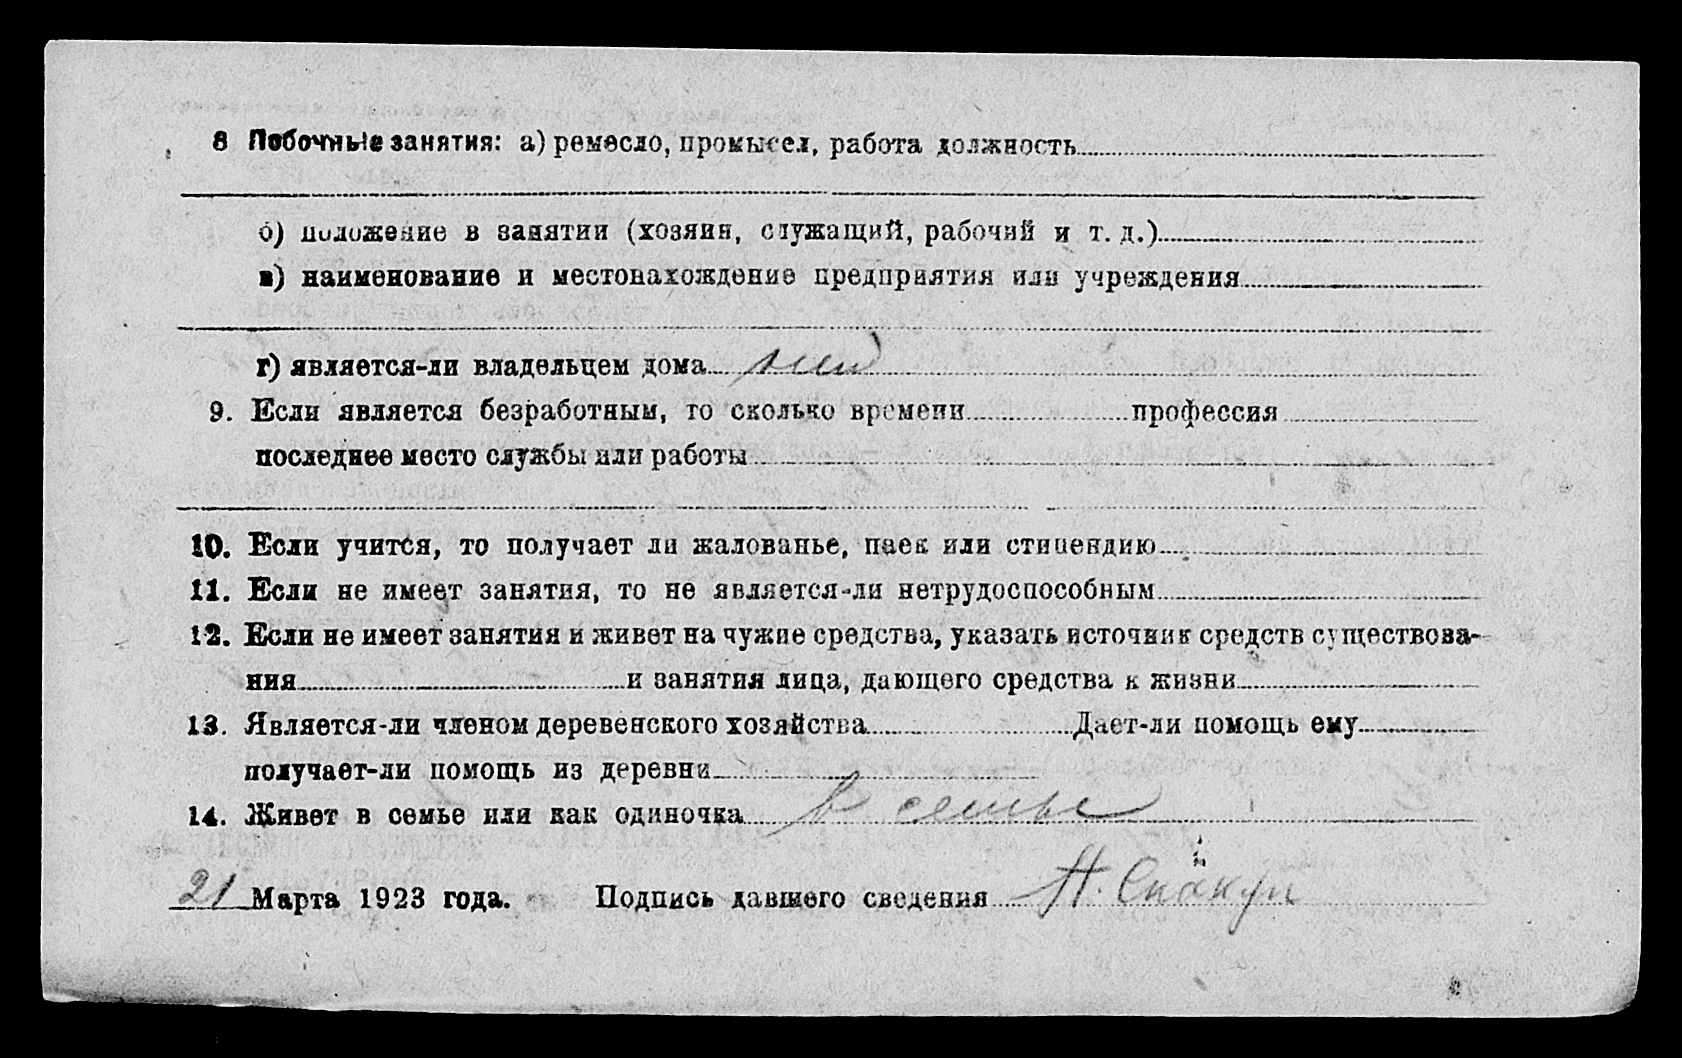 8 Побочные занятия: а) ремесло, промысел, работа должность
б) положение в занятии (хозяин, служащий, рабочий и т. д.)
в) наименование и местонахождение предприятия или учреждения
г) является-ли владельцем дома
9. Если является безработным, то сколько времени профессия
последнее место службы или работы
10. Если учится, то получает ли жалованье, паек или стипендию
11. Если не имеет занятия, то не является-ли нетрудоспособным
12. Если не имеет занятия и живет на чужие средства, указать источник средств существова-
ния и занятия лица, дающего средства к жизни
13. Является-ли членом деревенского хозяйства Дает-ли помощь ему
получает-ли помощь из деревни
14. Живет в семье или как одиночка в семье
21 Марта 1923 года. Подпись давшего сведения Н. Спакун